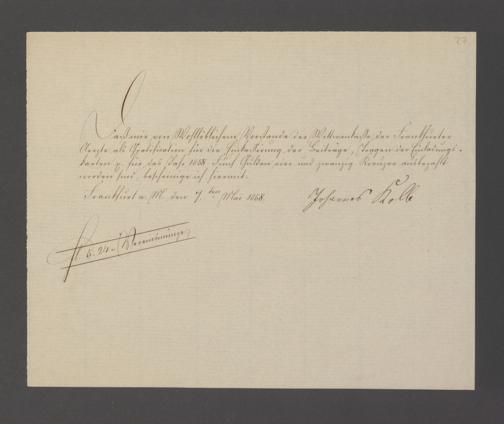 27
Daß mir von Wohllöblichem Vorstande der Wittwenkasse der Frankfurter
Aerzte als Gratification für die Einkassirung der Beiträge, Tragen der Einladungs-
karten p. für das Jahr 1868 Gulden vier und zwanzig Kreuzer ausbezahlt
worden sind, bescheinige ich hiermit.
Frankfurt a. M. den 7. ten Mai 1868.
Johannes Kolb
fl. 5. 24.